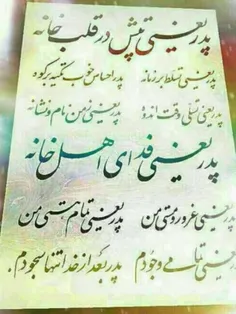 پدر یعنی تپش در قلب خانه
پدر یعنی تسلط بر زمانه پدر احساس خوب تکیه بر کوه
پدر یعنی تسلی وقت اندوه پدر یعنی ز من نام و نشانه
پدر یعنی فدای اهل خانه
پدر یعنی غرور و مستی من پدر یعنی تمام هستی من
پدر یعنی تمامی وجودم پدر بعد از خدا تنها سجودم.